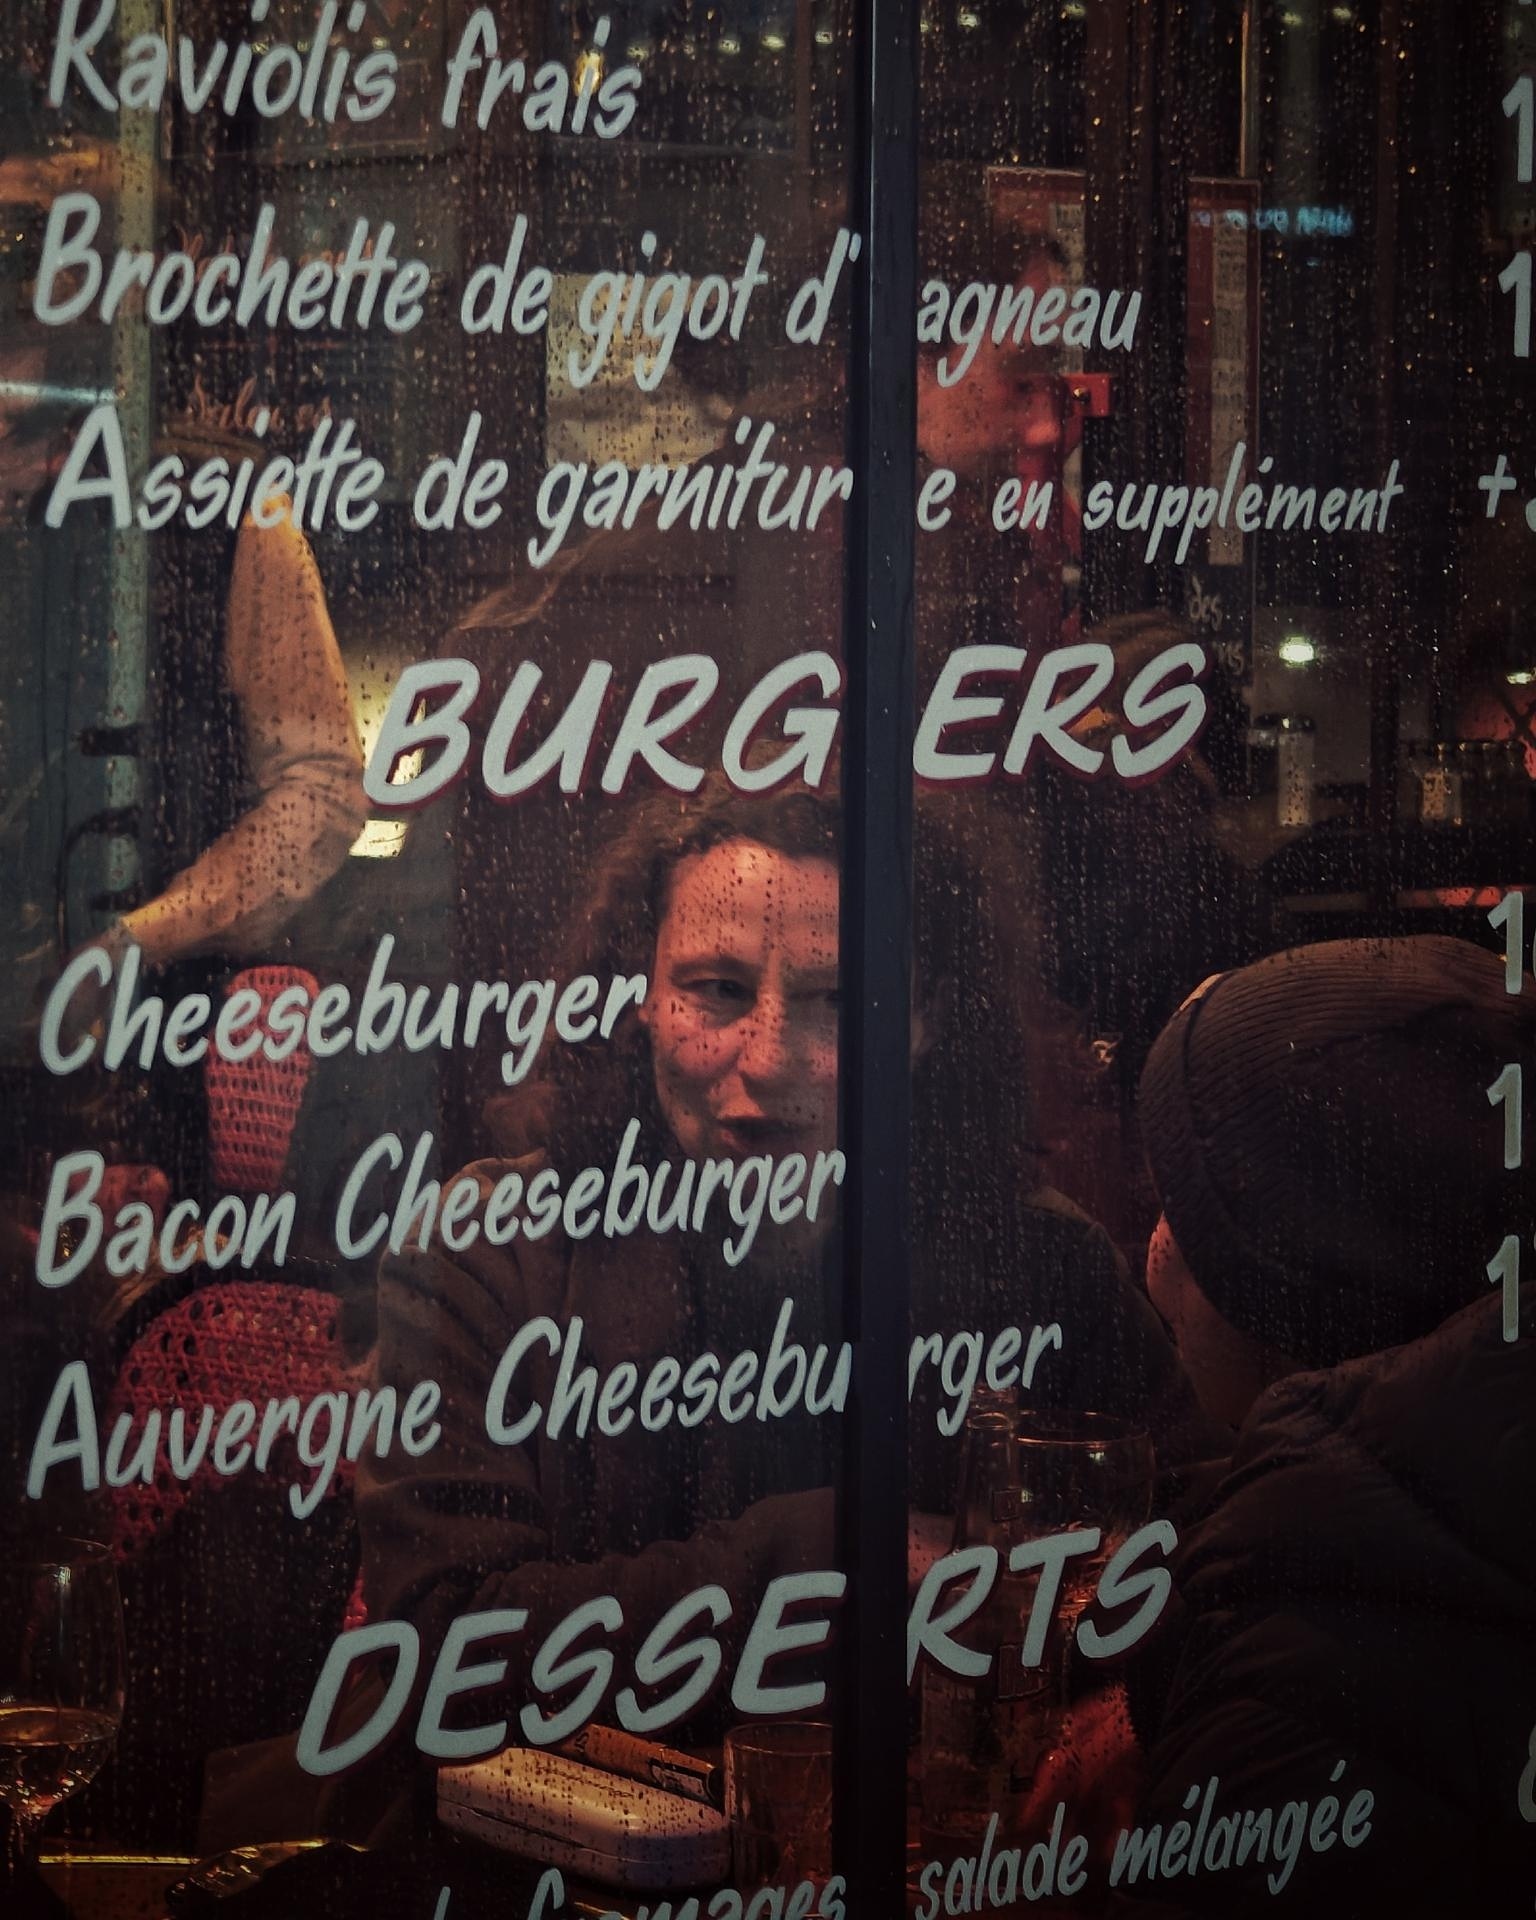 Raviolis frais
Brochette de gigot d'agneau
Assiette de garniture en supplément +
BURGERS
Cheeseburger
Bacon Cheeseburger
Auvergne Cheeseburger
DESSERTS
fromages salade mélangée